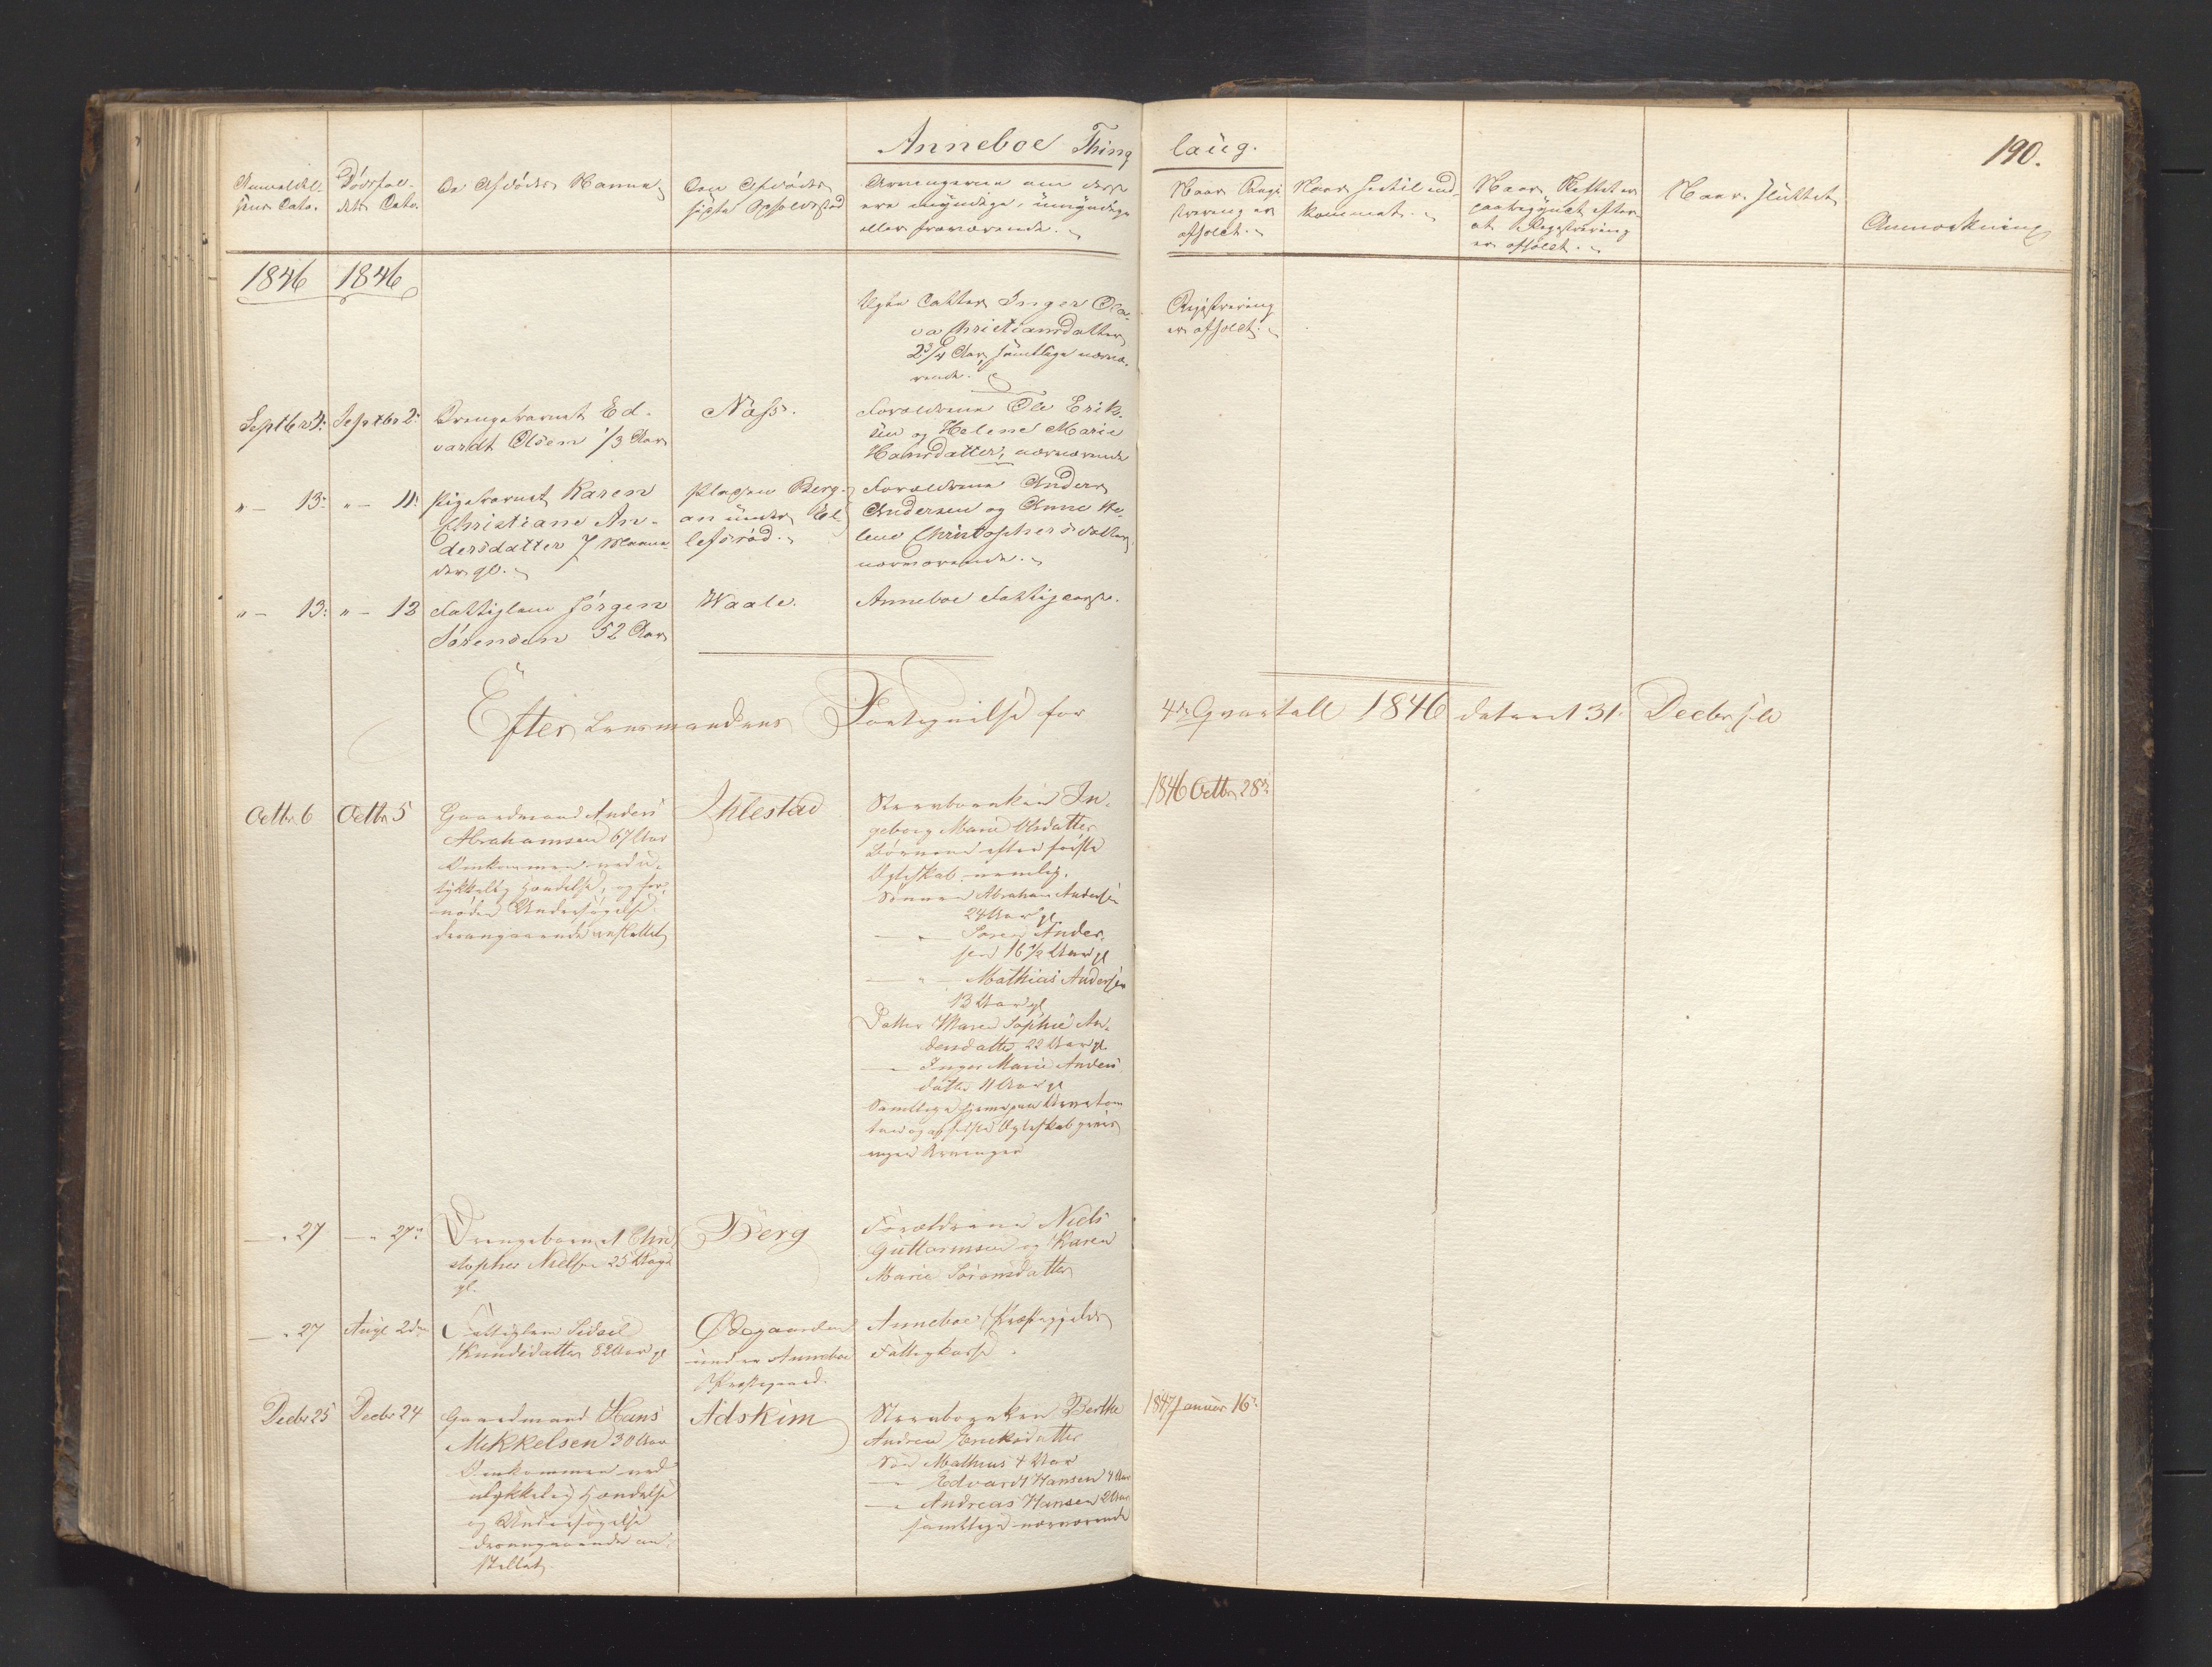 Anneboe Thing
laug.
190.
Anmeldel-
sens Dato.
Dødsfal-
dets Dato.
De Afdødes Navne
Den Afdødes
sidste Opholdssted
Arvingerne om disse
ere myndige, umyndige
eller fraværende.
Naar Regi
strering er
afholdt.
Naar hertil ind-
kommet.
Naar Skiftet er
paabegyndt efter
at Registrering
er afholdt.
Naar sluttet
Anmærkning
1846
1846
Datter Inger Ola-
va Christiansdatter
2 3/4 Aar, samtlige nærvæ-
rende.
Registrering
er afholdt.
Septbr 4:
Septbr 2:
Drengebarnet Ed-
vardt Olsen 1/3 Aar
Næss.
Forældrene Ole Erik-
sen og Helene Marie
Hansdatter, nærværende
" – 13:
" – 11:
Pigebarnet Karen
Christiane An-
dersdatter 7 Maane-
der gl.
Pladsen Berg-
an under El-
lefsrød.
Forældrene Anders
Andersen og Anne He-
lene Christophersdatter
nærværende.
" – 13:
" – 12
Fattiglem Jørgen
Sørensen 52 Aar
Waale.
Anneboe Fattigcasse.
Efter Lensmandens Fortegnelse for
4de Qvartall 1846 dateret 31. Decbr s. A.
Octbr 6
Octbr 5
Gaardmand Anders
Abrahamsen 67 Aar
Omkommen ved u-
lykkelig Hændelse, og for-
nøden Undersøgelse
derangaaende anstillet
Iklestad
Stervboenken In-
geborg Marie Olsdatter
Børnene efter første
Ægteskab nemlig.
Sønnen Abraham Andersen
24 Aar gl
— " — Søren Ander-
sen 16 1/2 Aar gl
— " — Mathias Andersen
13 Aar gl
Datter Maren Sophie An-
dersdatter 22 Aar gl.
— Inger Marie Anders
datter 11 Aar gl
Samtlige hjemme paa
og af sidste Ægteskab
ingen Arvinger
1846 Octbr 28de
— " 27
— " 27:
Drengebarnet Chri
stopher Nielsen 25 Dage
gl.
Berg
Forældrene Niels
Guttormsen og Karen
Marie Sørensdatter
— " 27
Augt 2den
Fattiglem Sidsel
Knudsdatter 82 Aar gl
Ødegaarden
under Anneboe
Præstegaard.
Anneboe Præstegjelds
Fattigkasse.
Decbr 25
Decbr 24
Gaardmand Hans
Mikkelsen 30 Aar
Omkommen ved
ulykkelig Hændelse
og Undersøgelse
derangaaende an-
stillet.
Adskim
Stervboenken Berthe
Andrea Ericksdatter
Søn Mathias 7 Aar
— " Edvardt Hansen 4 Aar
— " Andreas Hansen 2 Aar
samtlige nærværende
1847 Januar 16: